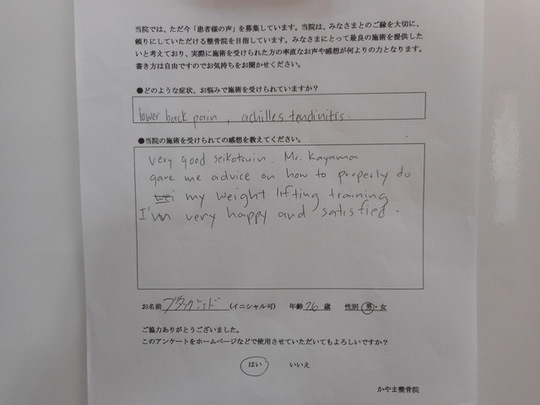 当院では、ただ今「患者様の声」を募集しています。当院は、みなさまとのご縁を大切に、
頼りにしていただける整骨院を目指しています。みなさまにとって最良の施術を提供した
いと考えており、実際に施術を受けられた方の率直なお声や感想が何よりの力となります。
書き方は自由ですのでお気持ちをお聞かせください。
●どのような症状、お悩みで施術を受けられていますか？
lower back pain, achilles tendinitis.
●当院の施術を受けられての感想を教えてください。
very good seikotsuin. Mr. Kayama
gave me advice on how to properly do
my weight lifting training
I'm very happy and satisfied.
お名前 (イニシャル可) 年齢 26 歳 性別 男・女
ご協力ありがとうございました。
このアンケートをホームページなどで使用させていただいてもよろしいですか？
はい いいえ
かやま整骨院